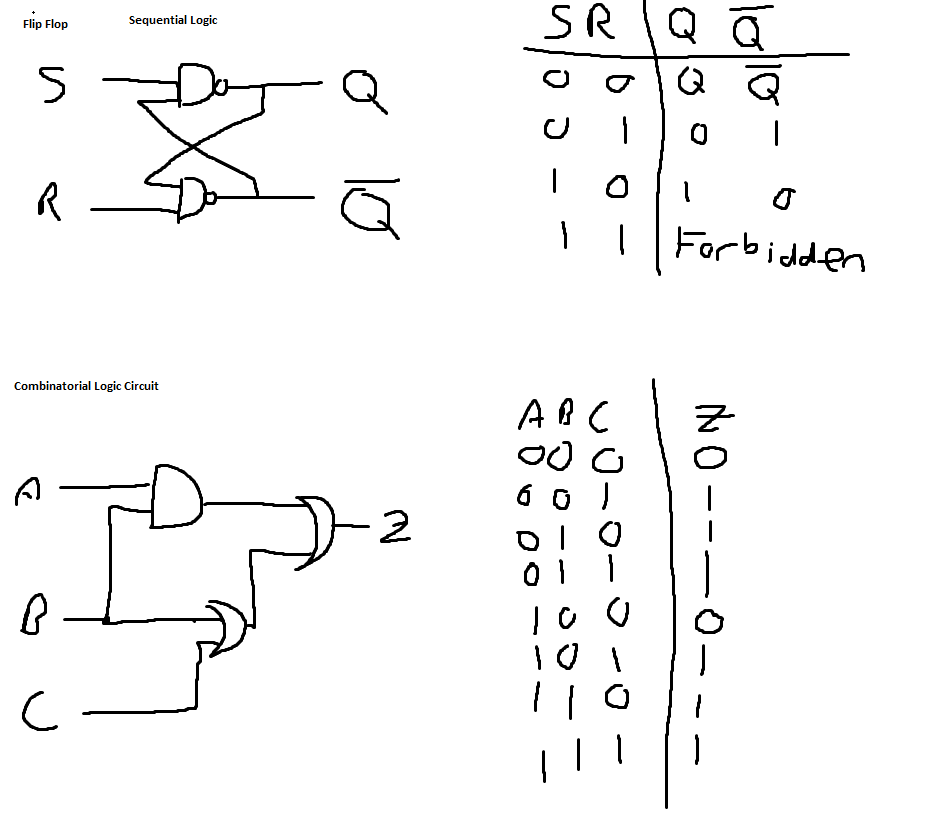 Flip Flop Sequential Logic
S Q
R Q̅
S R Q Q̅
0 0 Q Q̅
0 1 0 1
1 0 1 0
1 1 Forbidden
Combinatorial Logic Circuit
A
Z
B
C
A B C Z
0 0 0 0
0 0 1 1
0 1 0 1
0 1 1 1
1 0 0 0
1 0 1 1
1 1 0 1
1 1 1 1